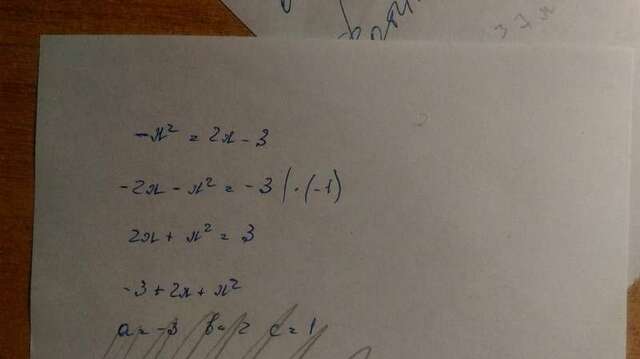 -x² = 2x - 3
-2x - x² = -3 | · (-1)
2x + x² = 3
-3 + 2x + x²
a = -3 b = 2 c = 1